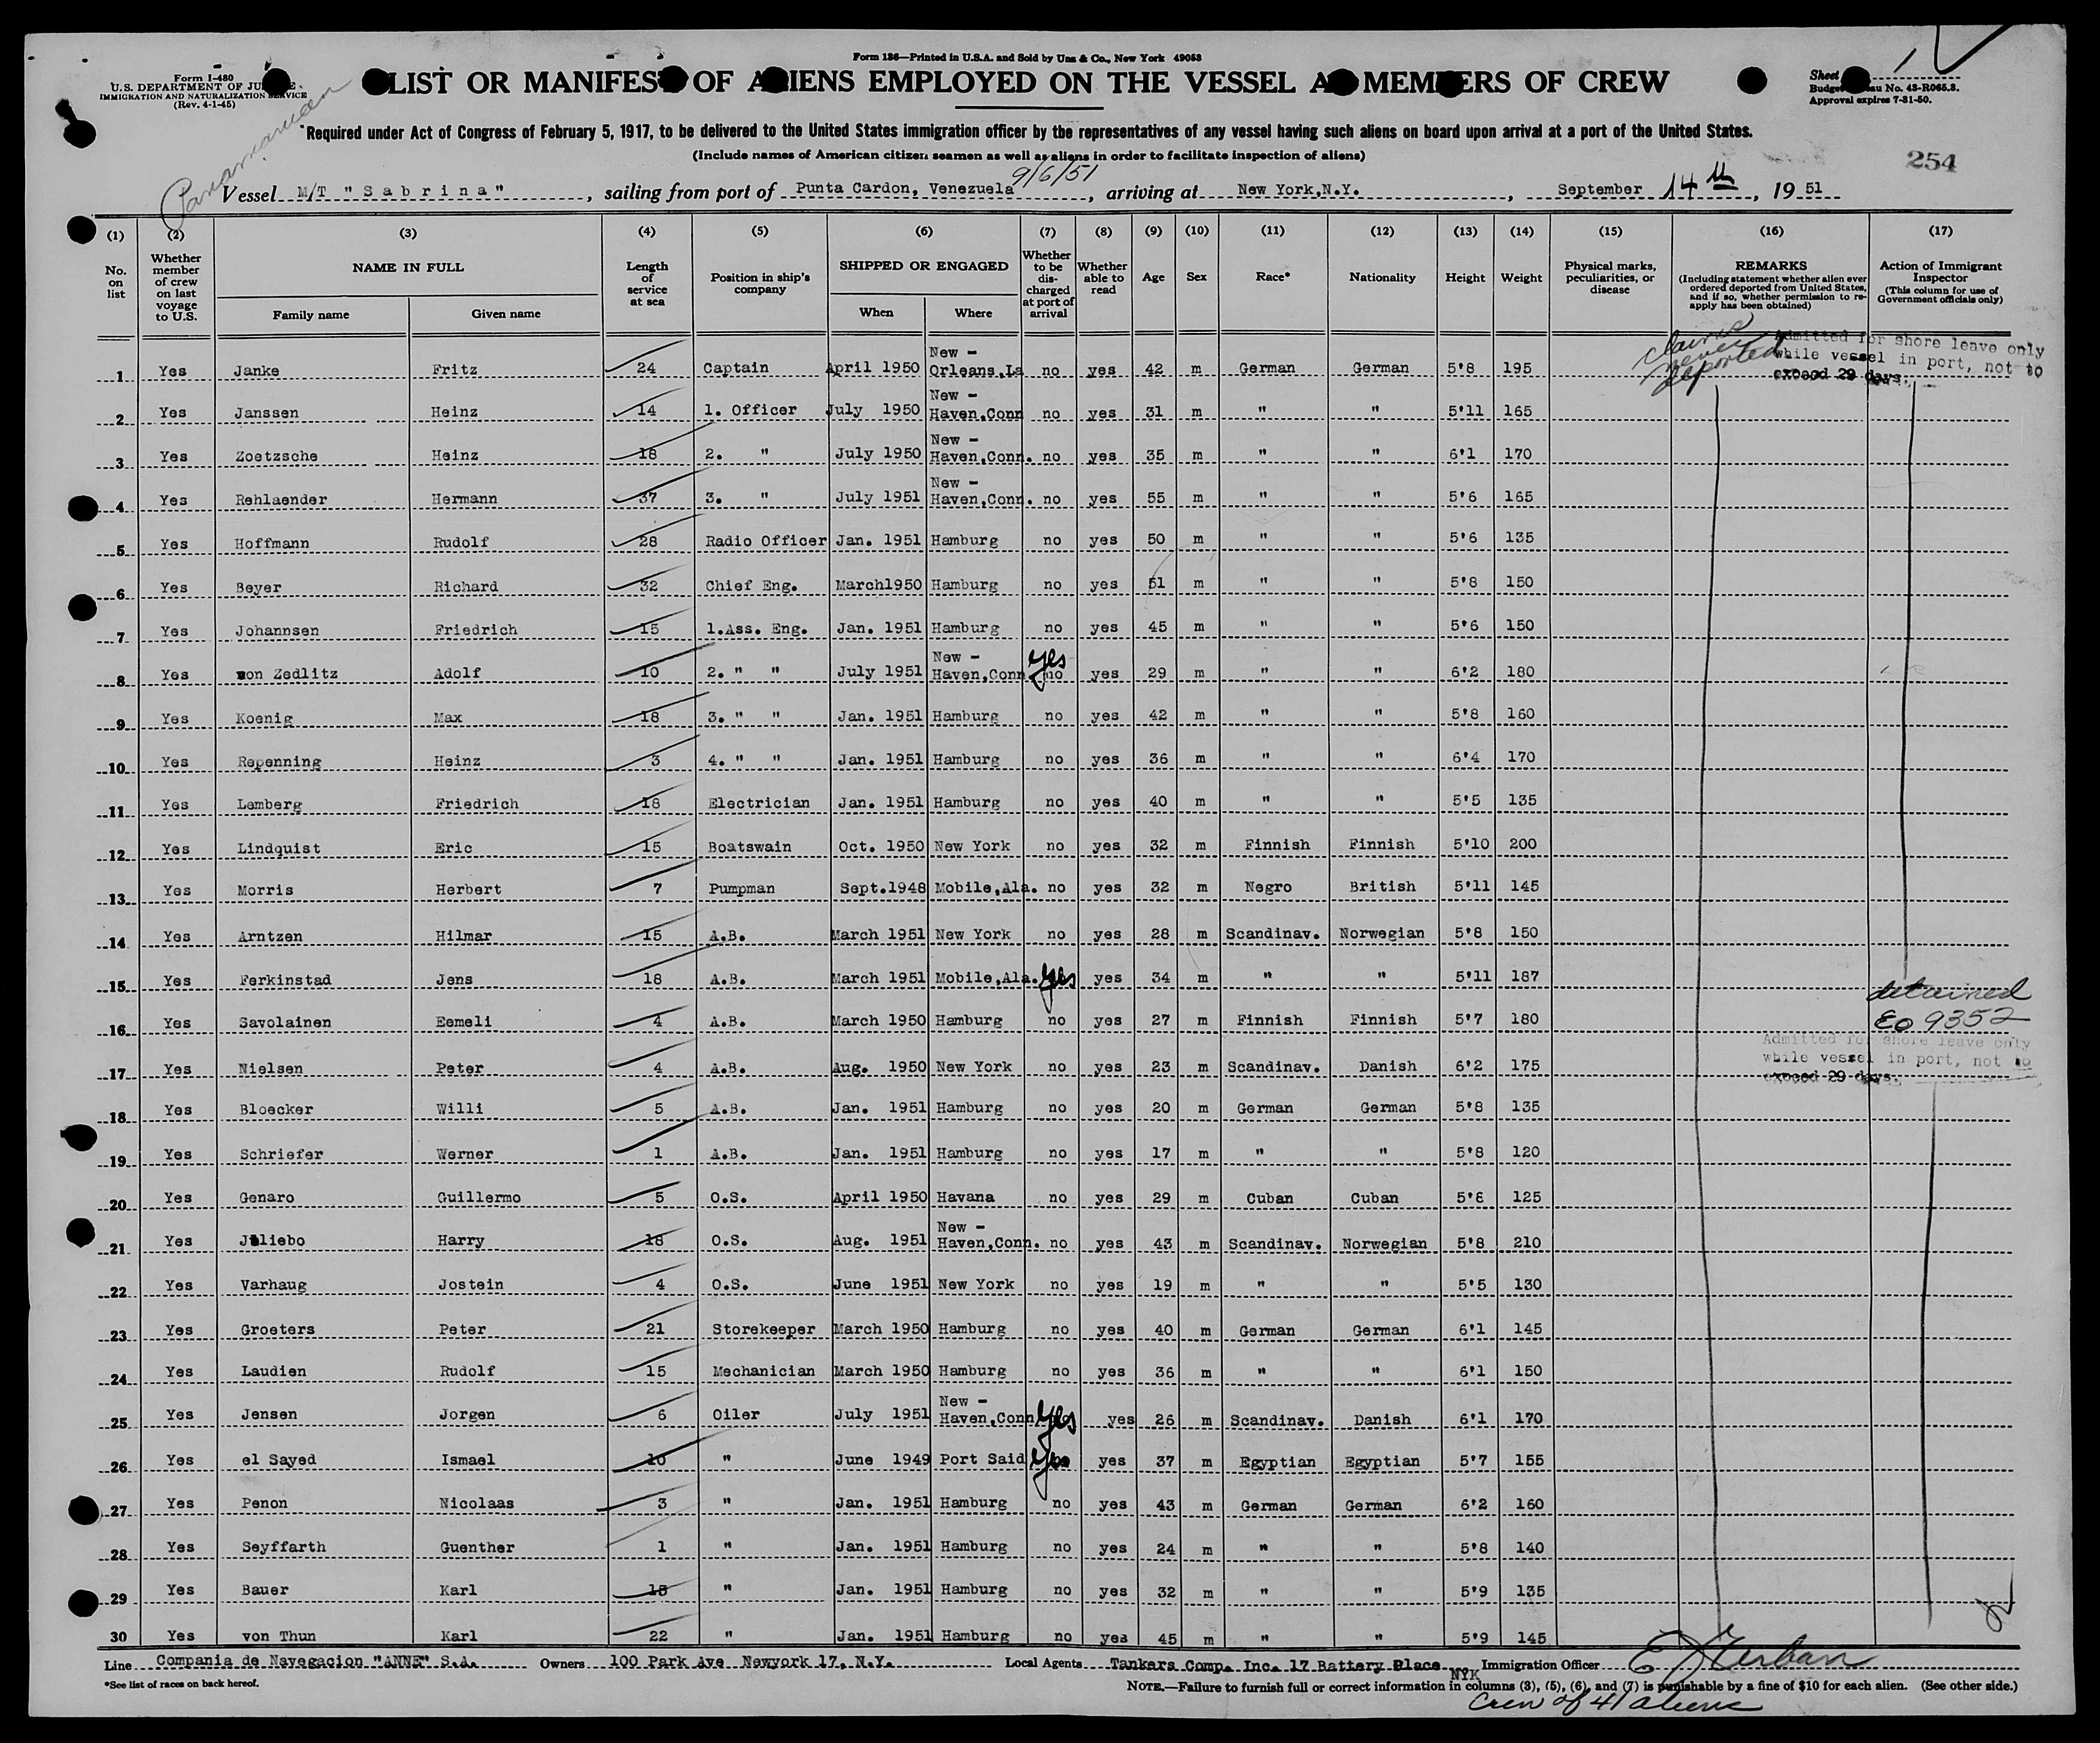 Form I-480
U.S. DEPARTMENT OF JU E
IMMIGRATION AND NATURALIZATION SERVICE
(Rev. 4-1-45)
Form 186—Printed in U.S.A. and Sold by Unz & Co., New York 49053
LIST OR MANIFEST OF ALIENS EMPLOYED ON THE VESSEL AS MEMBERS OF CREW
Sheet 1
Budget Bureau No. 43-R065.3.
Approval expires 7-31-50.
Required under Act of Congress of February 5, 1917, to be delivered to the United States immigration officer by the representatives of any vessel having such aliens on board upon arrival at a port of the United States.
(Include names of American citizen seamen as well as aliens in order to facilitate inspection of aliens)
254
Panamanian
9/6/51
Vessel M/T "Sabrina", sailing from port of Punta Cardon, Venezuela, arriving at New York,N.Y., September 14th, 19 51
(1) (2) (3) (4) (5) (6) (7) (8) (9) (10) (11) (12) (13) (14) (15) (16) (17)
No. on list
Whether member of crew on last voyage to U.S.
NAME IN FULL
Family name Given name
Length of service at sea
Position in ship's company
SHIPPED OR ENGAGED
When Where
Whether to be discharged at port of arrival
Whether able to read
Age Sex Race* Nationality Height Weight
Physical marks, peculiarities, or disease
REMARKS
(Including statement whether alien ever ordered deported from United States, and if so, whether permission to re-apply has been obtained)
Action of Immigrant Inspector
(This column for use of Government officials only)
claims never deported
Admitted for shore leave only
while vessel in port, not to
exceed 29 days.
1 Yes Janke Fritz 24 Captain April 1950 New - Orleans,La no yes 42 m German German 5'8 195
2 Yes Janssen Heinz 14 1. Officer July 1950 New - Haven,Conn no yes 31 m " " 5'11 165
3 Yes Zoetzsche Heinz 18 2. " July 1950 New - Haven,Conn. no yes 35 m " " 6'1 170
4 Yes Rehlaender Hermann 37 3. " July 1951 New - Haven,Conn. no yes 55 m " " 5'6 165
5 Yes Hoffmann Rudolf 28 Radio Officer Jan. 1951 Hamburg no yes 50 m " " 5'6 135
6 Yes Beyer Richard 32 Chief Eng. March1950 Hamburg no yes 51 m " " 5'8 150
7 Yes Johannsen Friedrich 15 1.Ass. Eng. Jan. 1951 Hamburg no yes 45 m " " 5'6 150
8 Yes von Zedlitz Adolf 10 2. " " July 1951 New - Haven,Conn no yes yes 29 m " " 6'2 180
9 Yes Koenig Max 18 3. " " Jan. 1951 Hamburg no yes 42 m " " 5'8 160
10 Yes Repenning Heinz 3 4. " " Jan. 1951 Hamburg no yes 36 m " " 6'4 170
11 Yes Lemberg Friedrich 18 Electrician Jan. 1951 Hamburg no yes 40 m " " 5'5 135
12 Yes Lindquist Eric 15 Boatswain Oct. 1950 New York no yes 32 m Finnish Finnish 5'10 200
13 Yes Morris Herbert 7 Pumpman Sept.1948 Mobile,Ala. no yes 32 m Negro British 5'11 145
14 Yes Arntzen Hilmar 15 A.B. March 1951 New York no yes 28 m Scandinav. Norwegian 5'8 150
15 Yes Ferkinstad Jens 18 A.B. March 1951 Mobile,Ala. yes yes 34 m " " 5'11 187
16 Yes Savolainen Eemeli 4 A.B. March 1950 Hamburg no yes 27 m Finnish Finnish 5'7 180 detained EO 9352
Admitted for shore leave only
while vessel in port, not to
exceed 29 days.
17 Yes Nielsen Peter 4 A.B. Aug. 1950 New York no yes 23 m Scandinav. Danish 6'2 175
18 Yes Bloecker Willi 5 A.B. Jan. 1951 Hamburg no yes 20 m German German 5'8 135
19 Yes Schriefer Werner 1 A.B. Jan. 1951 Hamburg no yes 17 m " " 5'8 120
20 Yes Genaro Guillermo 5 O.S. April 1950 Havana no yes 29 m Cuban Cuban 5'8 125
21 Yes Juliebo Harry 18 O.S. Aug. 1951 New - Haven,Conn. no yes 43 m Scandinav. Norwegian 5'8 210
22 Yes Varhaug Jostein 4 O.S. June 1951 New York no yes 19 m " " 5'5 130
23 Yes Groeters Peter 21 Storekeeper March 1950 Hamburg no yes 40 m German German 6'1 145
24 Yes Laudien Rudolf 15 Mechanician March 1950 Hamburg no yes 36 m " " 6'1 150
25 Yes Jensen Jorgen 6 Oiler July 1951 New - Haven,Conn yes yes 26 m Scandinav. Danish 6'1 170
26 Yes el Sayed Ismael 10 " June 1949 Port Said yes yes 37 m Egyptian Egyptian 5'7 155
27 Yes Penon Nicolaas 3 " Jan. 1951 Hamburg no yes 43 m German German 6'2 160
28 Yes Seyffarth Guenther 1 " Jan. 1951 Hamburg no yes 24 m " " 5'8 140
29 Yes Bauer Karl 15 " Jan. 1951 Hamburg no yes 32 m " " 5'9 135
30 Yes von Thun Karl 22 " Jan. 1951 Hamburg no yes 45 m " " 5'9 145
Line Compania de Navegacion "ANNE" S.A. Owners 100 Park Ave Newyork 17, N.Y. Local Agents Tankers Comp. Inc. 17 Battery Place NYK Immigration Officer
*See list of races on back hereof.
NOTE.—Failure to furnish full or correct information in columns (3), (5), (6), and (7) is punishable by a fine of $10 for each alien. (See other side.)
Crew of 41 aliens